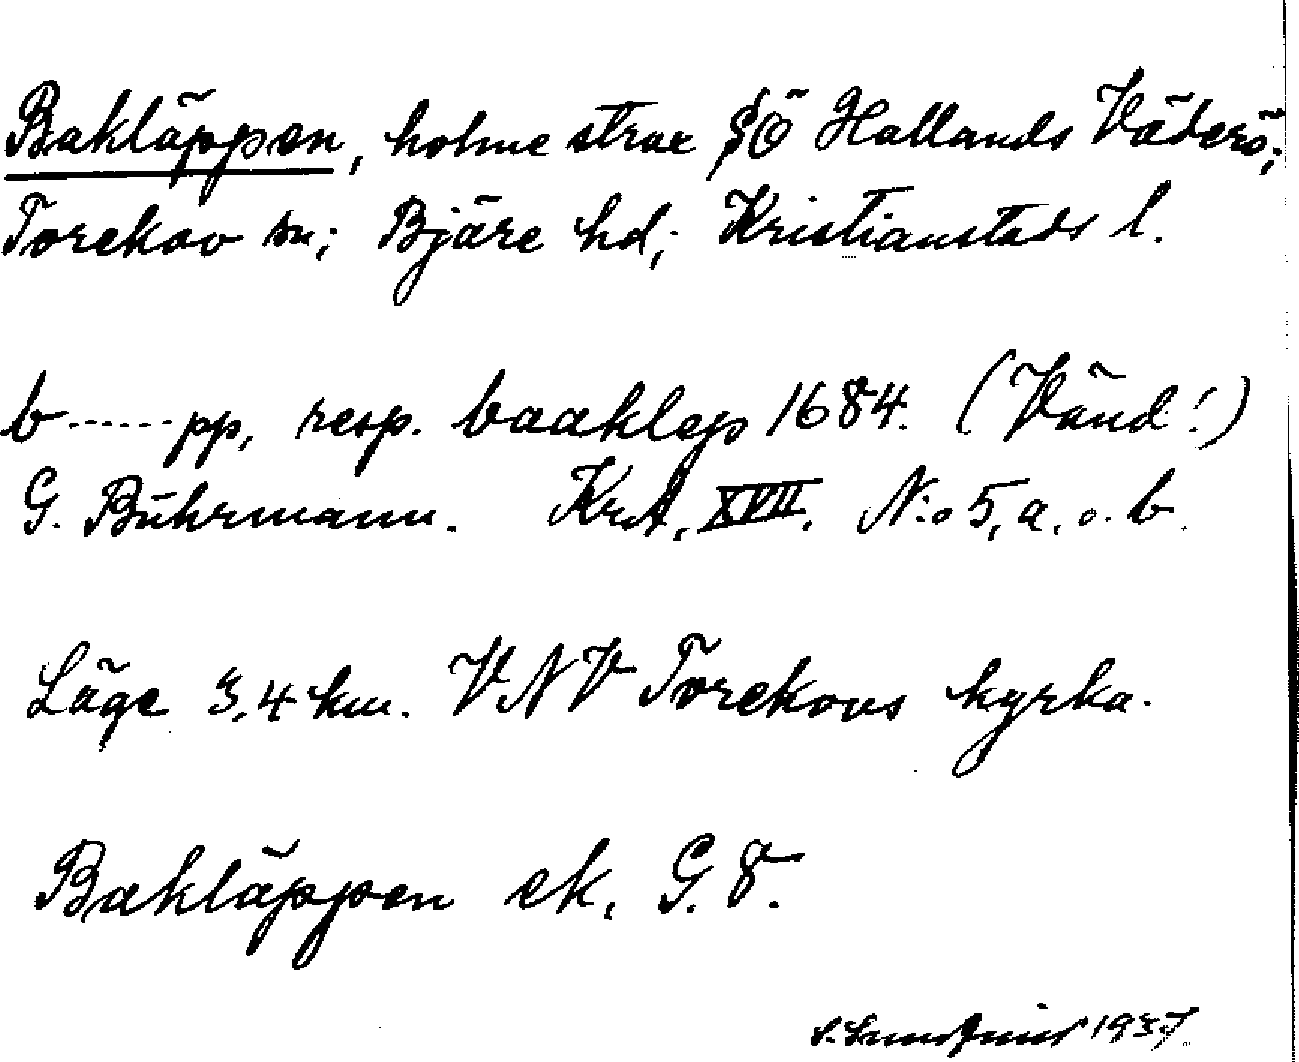 Bakläppen, holme strax SÖ Hallands Väderö;
Torekov sn; Bjäre hd; Kristianstads l.
b------pp, resp. baaklep 1684. (Vänd!)
G. Buhrmann. KrA. XVII. N:o 5, a. o. b.
Läge 3,4 km. VNV Torekovs kyrka.
Bakläppen ek. G. 8.
1937